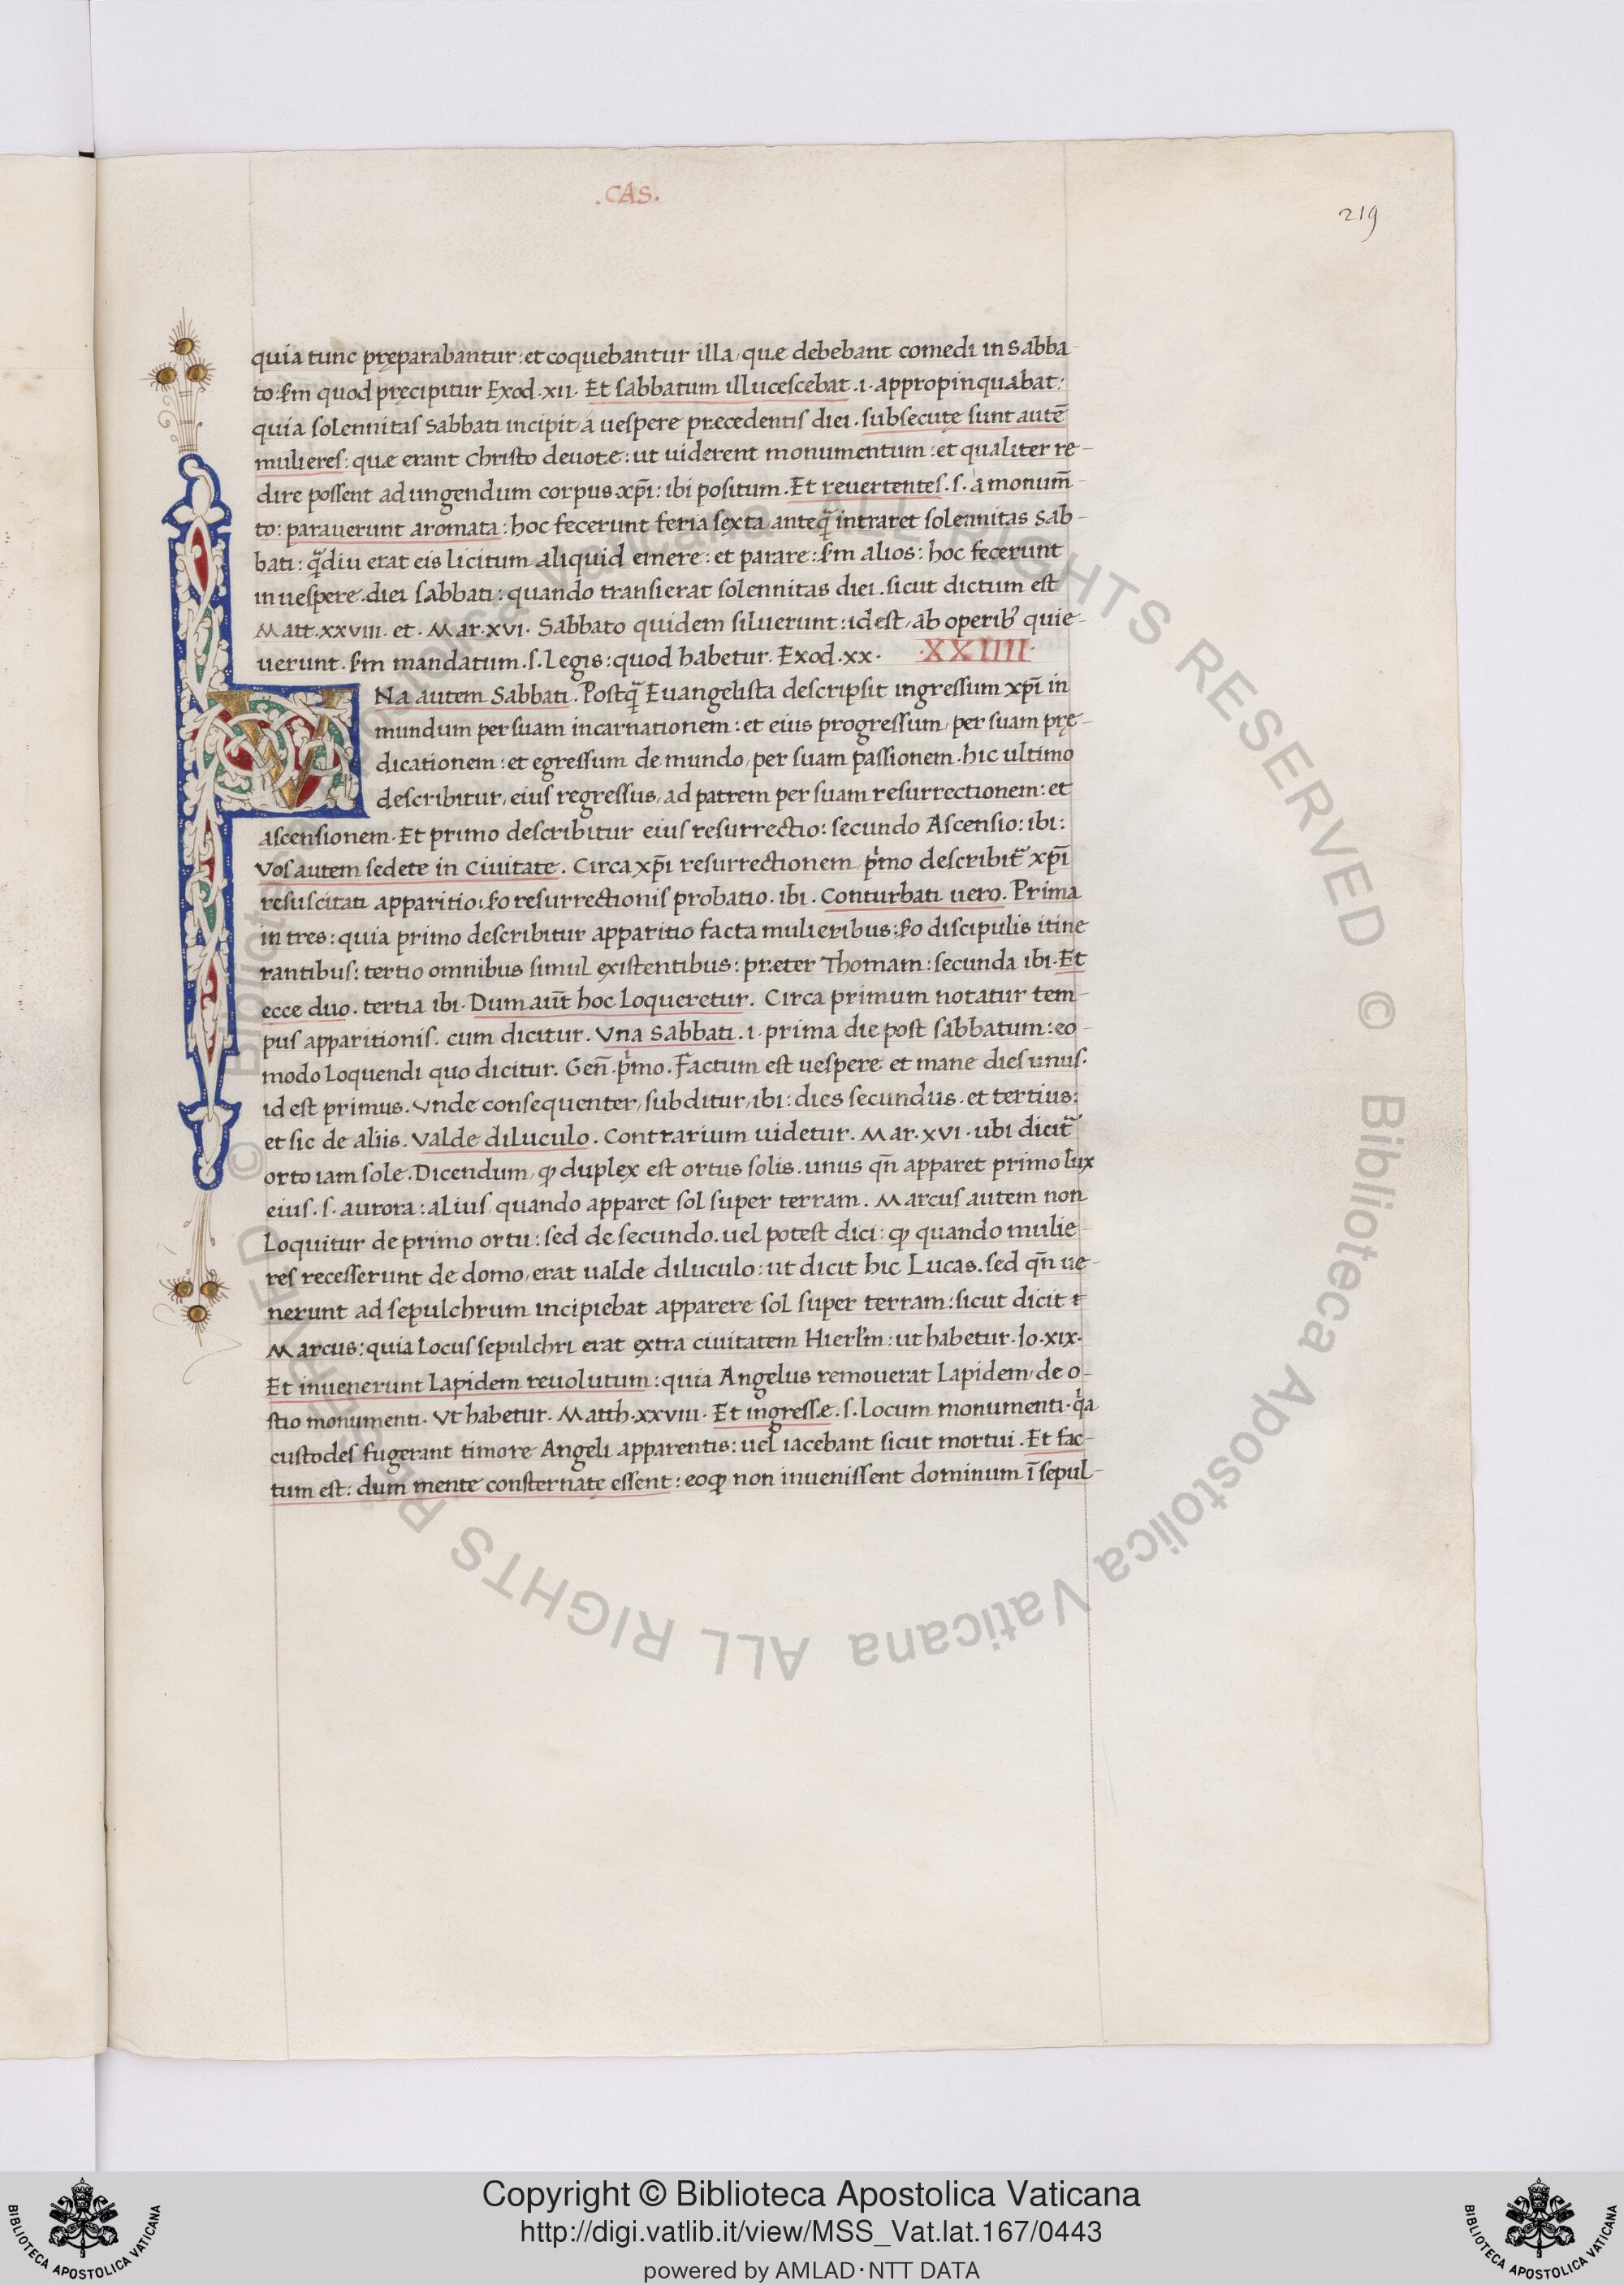 .CAS.
219
quia tunc pręparabantur: et coquebantur illa, quæ debebant comedi in Sabba-
to: s̄m quod pręcipitur Exod. xii. Et sabbatum illucescebat .i. appropinquabat:
quia solennitas Sabbati incipit á uespere præcedentis diei. subsecutę sunt autē
mulieres: quæ erant Christo deuote: ut uiderent monumentum: et qualiter re-
dire possent ad ungendum corpus xp̄i: ibi positum. Et reuertentes .s. á monum̄-
to: parauerunt aromata: hoc fecerunt feria sexta anteq̄ intraret solennitas Sab-
bati: q̄diu erat eis licitum aliquid emere: et parare: s̄m alios: hoc fecerunt
in uespere diei sabbati: quando transierat solennitas diei. sicut dictum est
Matt. xxviii. et. Mar. xvi. Sabbato quidem siluerunt: id est, ab operib; quie-
uerunt. s̄m mandatum .s. Legis: quod habetur. Exod. xx.
.XXIIII.
VNa autem Sabbati. Postq̄ Euangelista descripsit ingressum xp̄i in
mundum per suam incarnationem: et eius progressum, per suam prę-
dicationem: et egressum de mundo, per suam passionem. hic ultimo
describitur, eius regressus, ad patrem per suam resurrectionem: et
ascensionem. Et primo describitur eius resurrectio: secundo Ascensio: ibi:
Vos autem sedete in Ciuitate. Circa xp̄i resurrectionem, pͥmo describit̃ xp̄i
resuscitati apparitio: s̄o resurrectionis probatio. ibi. Conturbati uero. Prima
in tres: quia primo describitur apparitio facta mulieribus: s̄o discipulis itine
rantibus: tertio omnibus simul existentibus: præter Thomam: secunda ibi. Et
ecce duo. tertia ibi. Dum aūt hoc Loqueretur. Circa primum notatur tem-
pus apparitionis. cum dicitur. Vna Sabbati .i. prima die post sabbatum: eo-
modo Loquendi quo dicitur. Gen̄. pͥmo. Factum est uespere et mane dies unus.
id est primus. Vnde consequenter, subditur, ibi: dies secundus. et tertius:
et sic de aliis. Valde diluculo. Contrarium uidetur. Mar. xvi. ubi dicit̃
orto iam sole. Dicendum, ꝙ duplex est ortus solis. unus qn̄ apparet primo Lux
eius .s. aurora: alius, quando apparet sol super terram. Marcus autem non
Loquitur de primo ortu: sed de secundo. uel potest dici: ꝙ quando mulie-
res recesserunt de domo, erat ualde diluculo: ut dicit hic Lucas. sed qn̄ ue-
nerunt ad sepulchrum incipiebat apparere sol super terram: sicut dicit
Marcus: quia Locus sepulchri erat extra ciuitatem Hierl̄m: ut habetur. Io. xix.
Et inuenerunt Lapidem reuolutum: quia Angelus remouerat Lapidem, de o-
stio monumenti. Vt habetur. Matth. xxviii. Et ingressæ .s. Locum monumenti. qͥa
custodes fugerant timore Angeli apparentis: uel iacebant sicut mortui. Et fac-
tum est: dum mente consternatę essent: eoꝙ non inuenissent dominum ī sepul-
© Biblioteca Apostolica Vaticana ALL RIGHTS RESERVED © Biblioteca Apostolica Vaticana ALL RIGHTS RESERVED
Copyright © Biblioteca Apostolica Vaticana
http://digi.vatlib.it/view/MSS_Vat.lat.167/0443
powered by AMLAD·NTT DATA
BIBLIOTECA APOSTOLICA VATICANA
BIBLIOTECA APOSTOLICA VATICANA